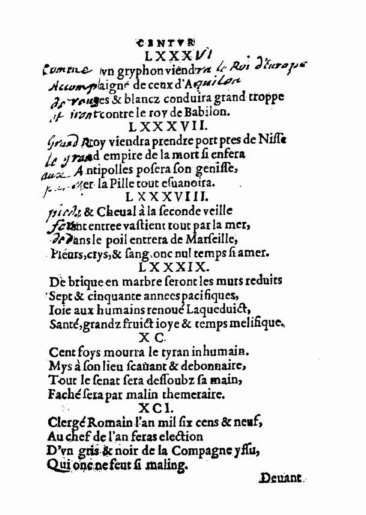 CENTVR
LXXXVI
Comme vn gryphon viendra le Roi d'europe
Accompaigné de ceux d'Aquilon
de rouges & blancz conduira grand troppe
et iront contre le roy de Babilon.
LXXXVII.
Grand Roy viendra prendre port pres de Nisse
le grand empire de la mort si enfera
aux Antipolles posera son genisse,
mer la Pille tout esuanoira.
LXXXVIII.
pieds & Cheual à la seconde veille
feront entree vastient tout par la mer,
dedans le poil entrera de Marseille,
Pleurs, crys, & sang onc nul temps si amer.
LXXXIX.
De brique en marbre seront les murs reduits
Sept & cinquante annees pacifiques,
Ioie aux humains renoué Laqueduict,
Santé, grandz fruict ioye & temps melifique.
XC.
Cent foys mourra le tyran inhumain.
Mys à son lieu scauant & debonnaire,
Tout le senat sera dessoubz sa main,
Faché sera par malin themeraire.
XCI.
Clergé Romain l'an mil six cens & neuf,
Au chef de l'an feras election
D'vn gris & noir de la Compagne yssu,
Qui onc ne feut si maling.
Deuant.